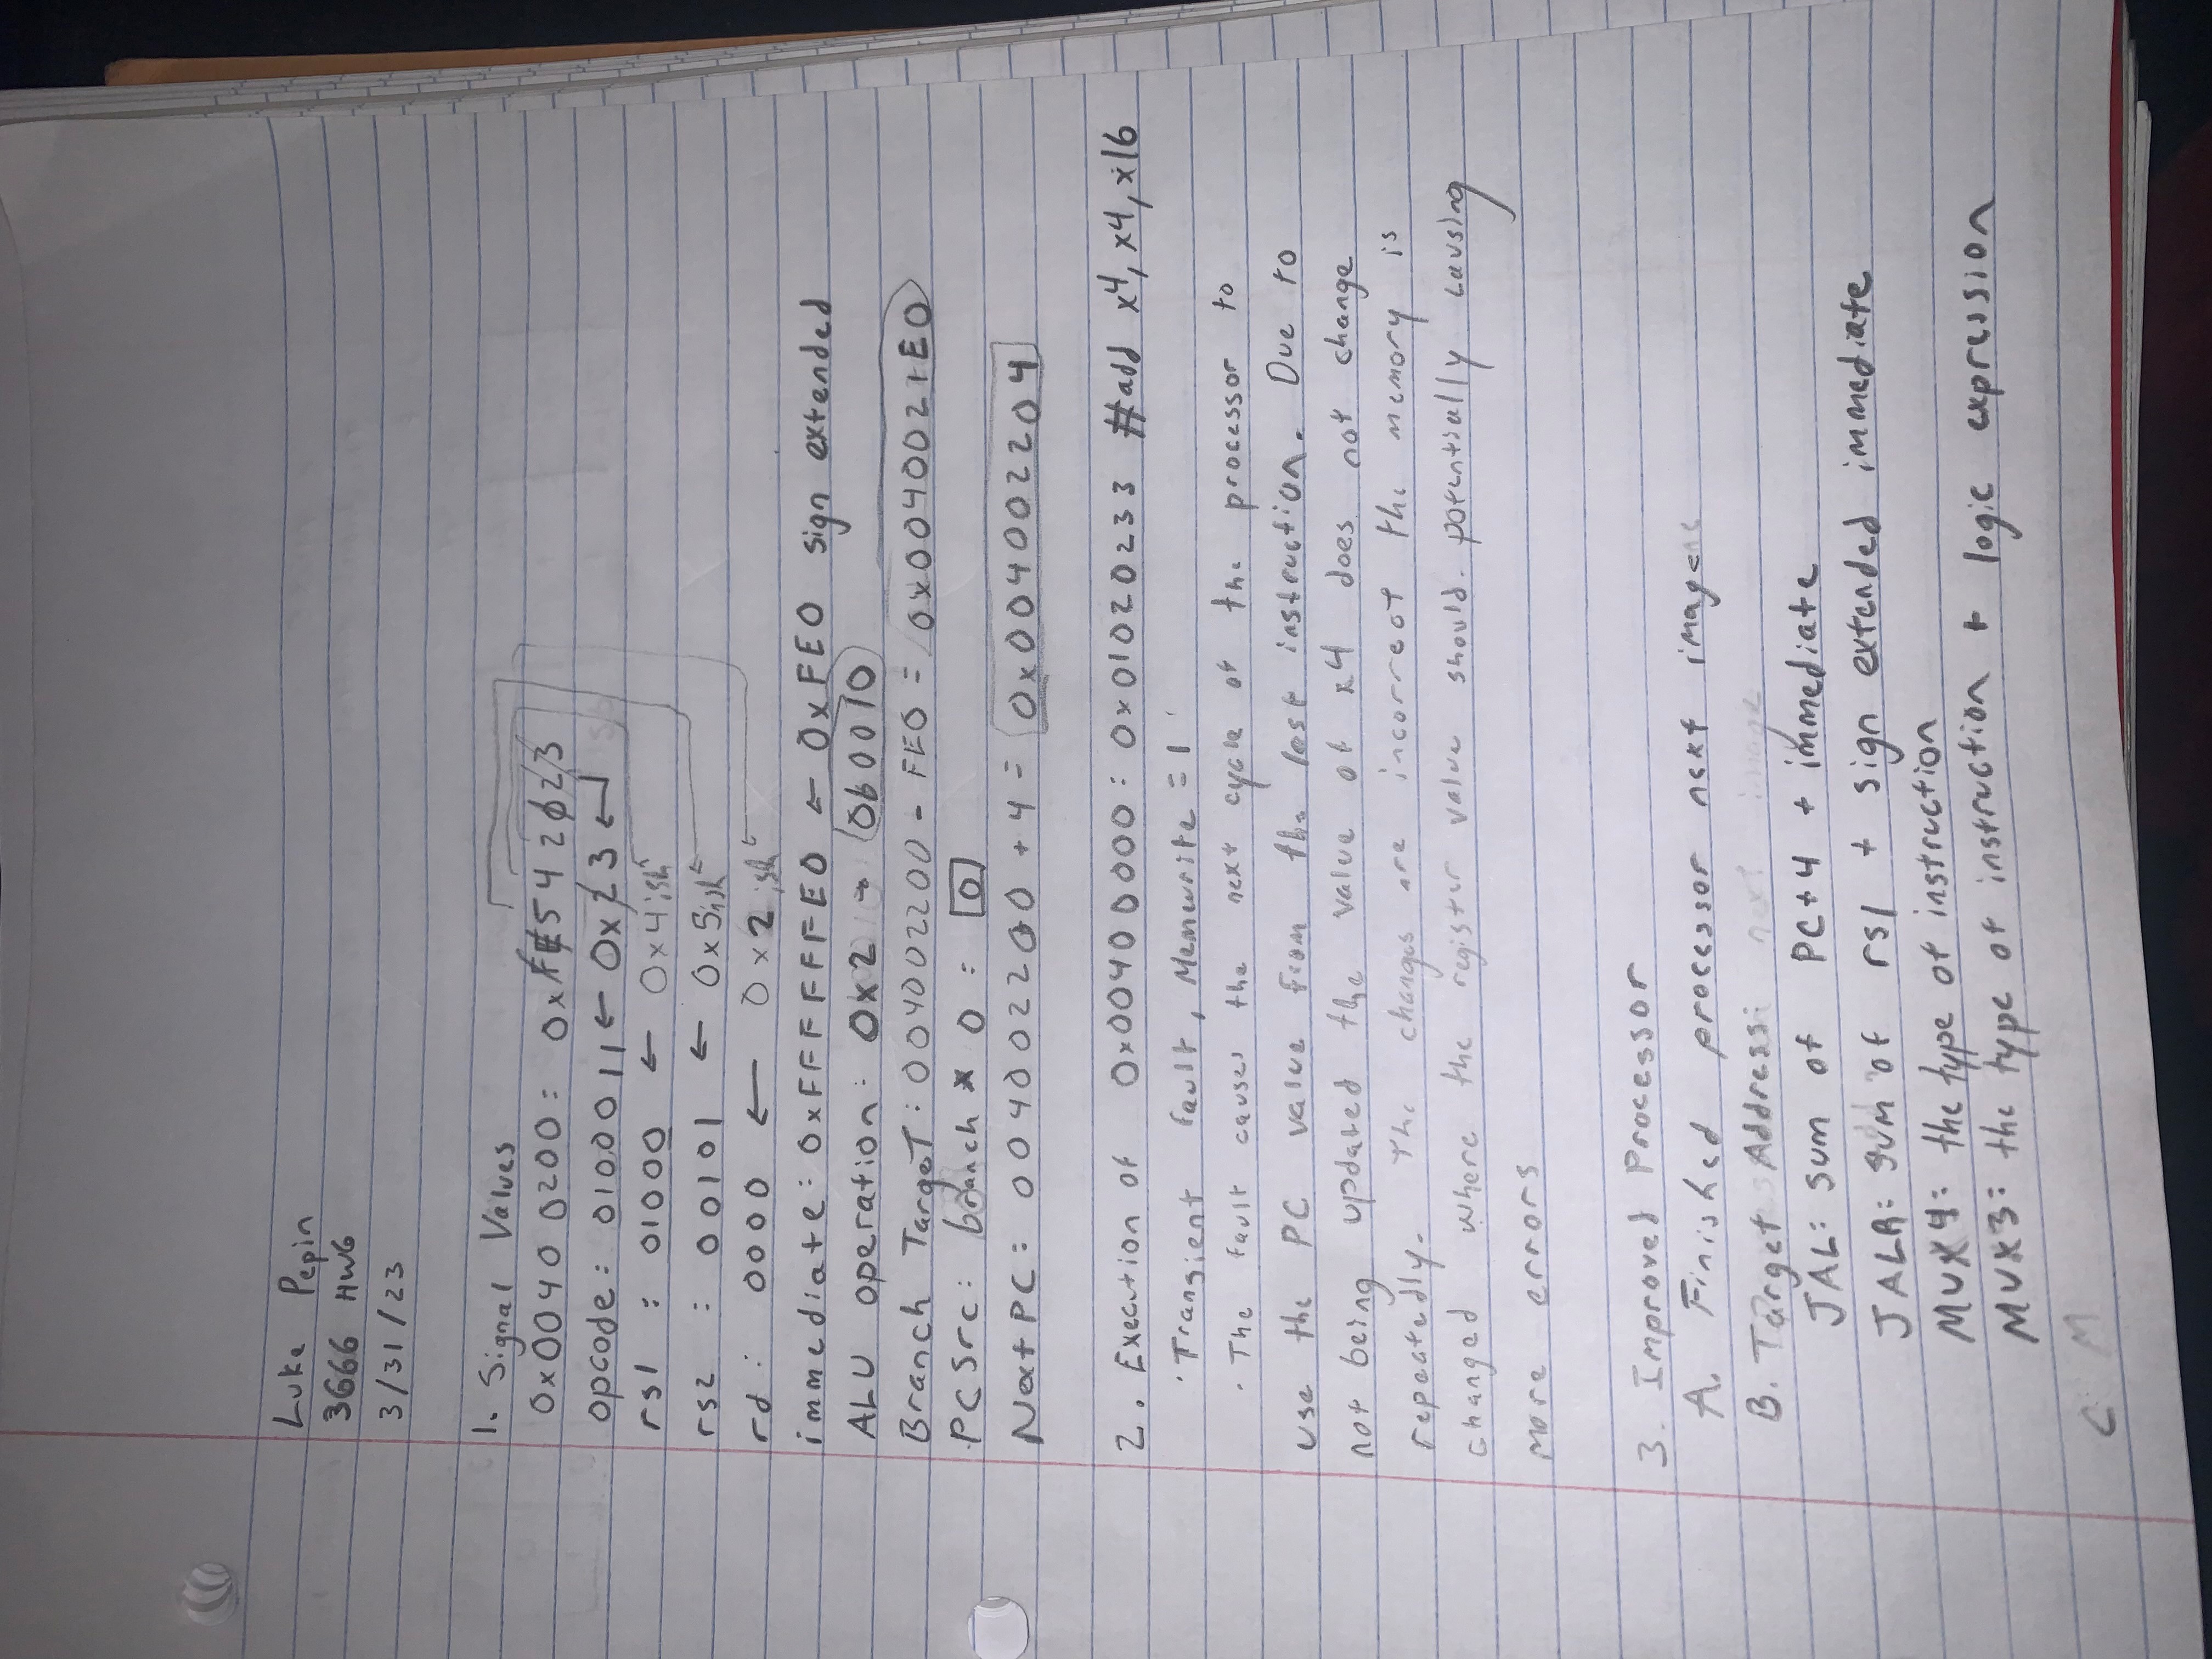 Luke Pepin
3666 HW6
3/31/23
1. Signal Values
0x0040 0200: 0xFE542023
opcode: 0100011 ← 0x23
rs1 : 01000 ← 0x4ish
rs2 : 00101 ← 0x5ish
rd: 0000 ← 0x2ish
immediate: 0xFFFFFFE0 ← 0xFE0 sign extended
ALU operation: 0x2 → 0b0010
Branch Target: 004002200 - FE0 = 0x0040021E0
PCSrc: branch * 0 = 0
Next PC: 004002200 + 4 = 0x004002204
2. Execution of 0x00400000: 0x01020233 #add x4, x4, x16
· Transient fault, Memwrite = 1
· The fault causes the next cycle of the processor to
use the PC value from the last instruction. Due to
not being updated the value of x4 does not change
repeatedly. The changes are incorrect the memory is
changed where the register value should. potentially causing
more errors
3. Improved Processor
A. Finished processor next image
B. Target Address: next image
JAL: sum of PC+4 + immediate
JALR: sum of rs1 + sign extended immediate
MUX4: the type of instruction
MUX3: the type of instruction + logic expression
C M